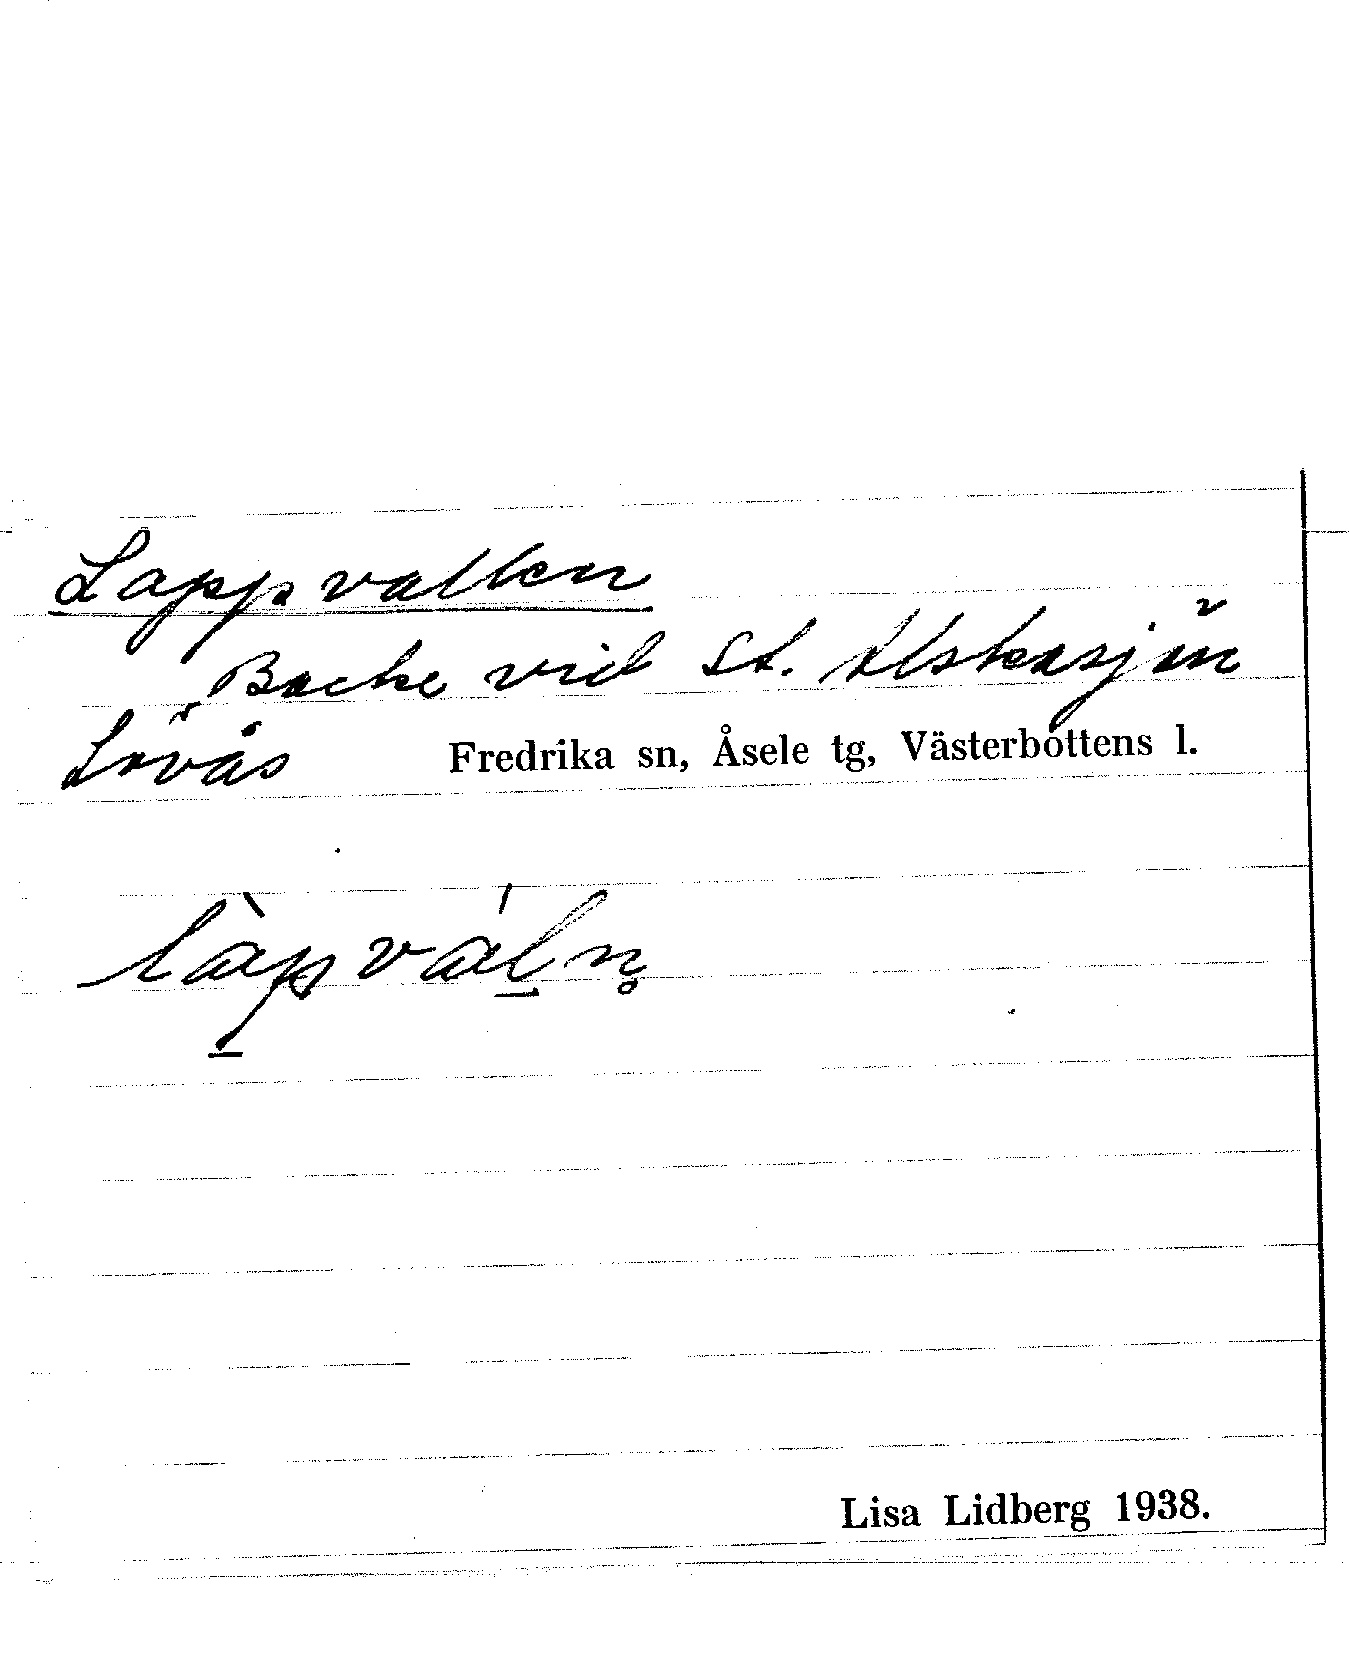 Lappvallen
Backe vid St. Alskasjön
Lövås Fredrika sn, Åsele tg, Västerbottens l.
làpválṇ
Lisa Lidberg 1938.